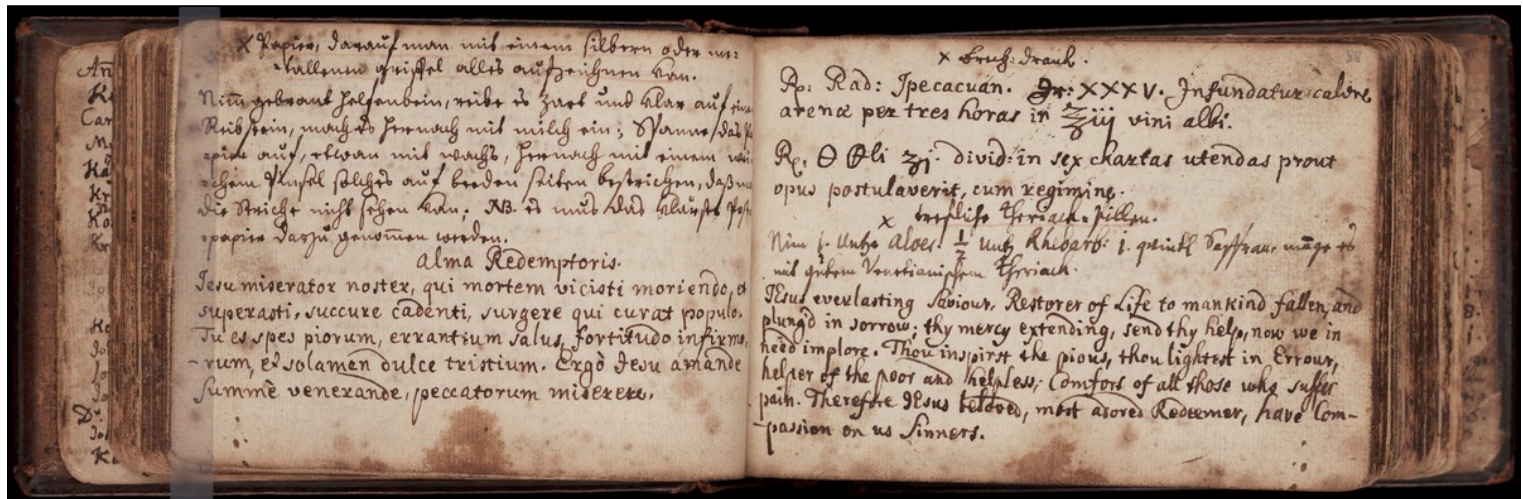 An
Ki
Car
M
Kä
Kr
Ko
Kr
Ho
Jo
Jo
Jo
D.
Jo
K
x Papier, darauf man mit einem silbern oder me=
=tallenen griffel alles aufzeichnen kan.
Nim̄ gebrant helfenbein, reibe es zart und klar auf einem
Reibstein, mach es hernach mit milch ein; Spanne das Pa
=pier auf, etwan mit wachs, hernach mit einem wei
=chem Pinsel solches auf beeden seiten bestrichen, daß m
die Striche nicht sehen kan; NB. es mus das klärste Post
=papier darzu genom̄en werden.
Alma Redemptoris.
Jesu miserator noster, qui mortem vicisti moriendo, et
superasti, succure cadenti, surgere qui curat populo.
Tu es spes piorum, errantium salus, fortitudo infirmo,
-rum, et solamen dulce tristium. Ergò Jesu amande
summè venerande, peccatorum miserere.
88
x brech=dranck.
Rp. Rad: Ipecacuan. Gr: XXXV. Infundatur calore
arenæ per tres horas in ℥iij vini albi.
Rp. Θ Φli ʒj. divid: in sex chartas utendas prout
opus postulaverit, cum regimine.
x trefliche Theriack=Pillen.
Nim j. Untze Aloes. ½ Untz Rhebarb: j. quintl Saffran, mänge es
mit gutem Venetianischem Theriack.
JEsus everlasting Saviour, Restorer of Life to mankind fallen, and
plung'd in sorrow; thy mercy extending, send thy help, now we in
need implore. Thou inspirst the pious, thou lightest in Errour,
helper of the poor and helpless; Comfort of all those who suffer
pain. Therefore JEsus beloved, most adored Redeemer, have Com-
-passion on us Sinners.